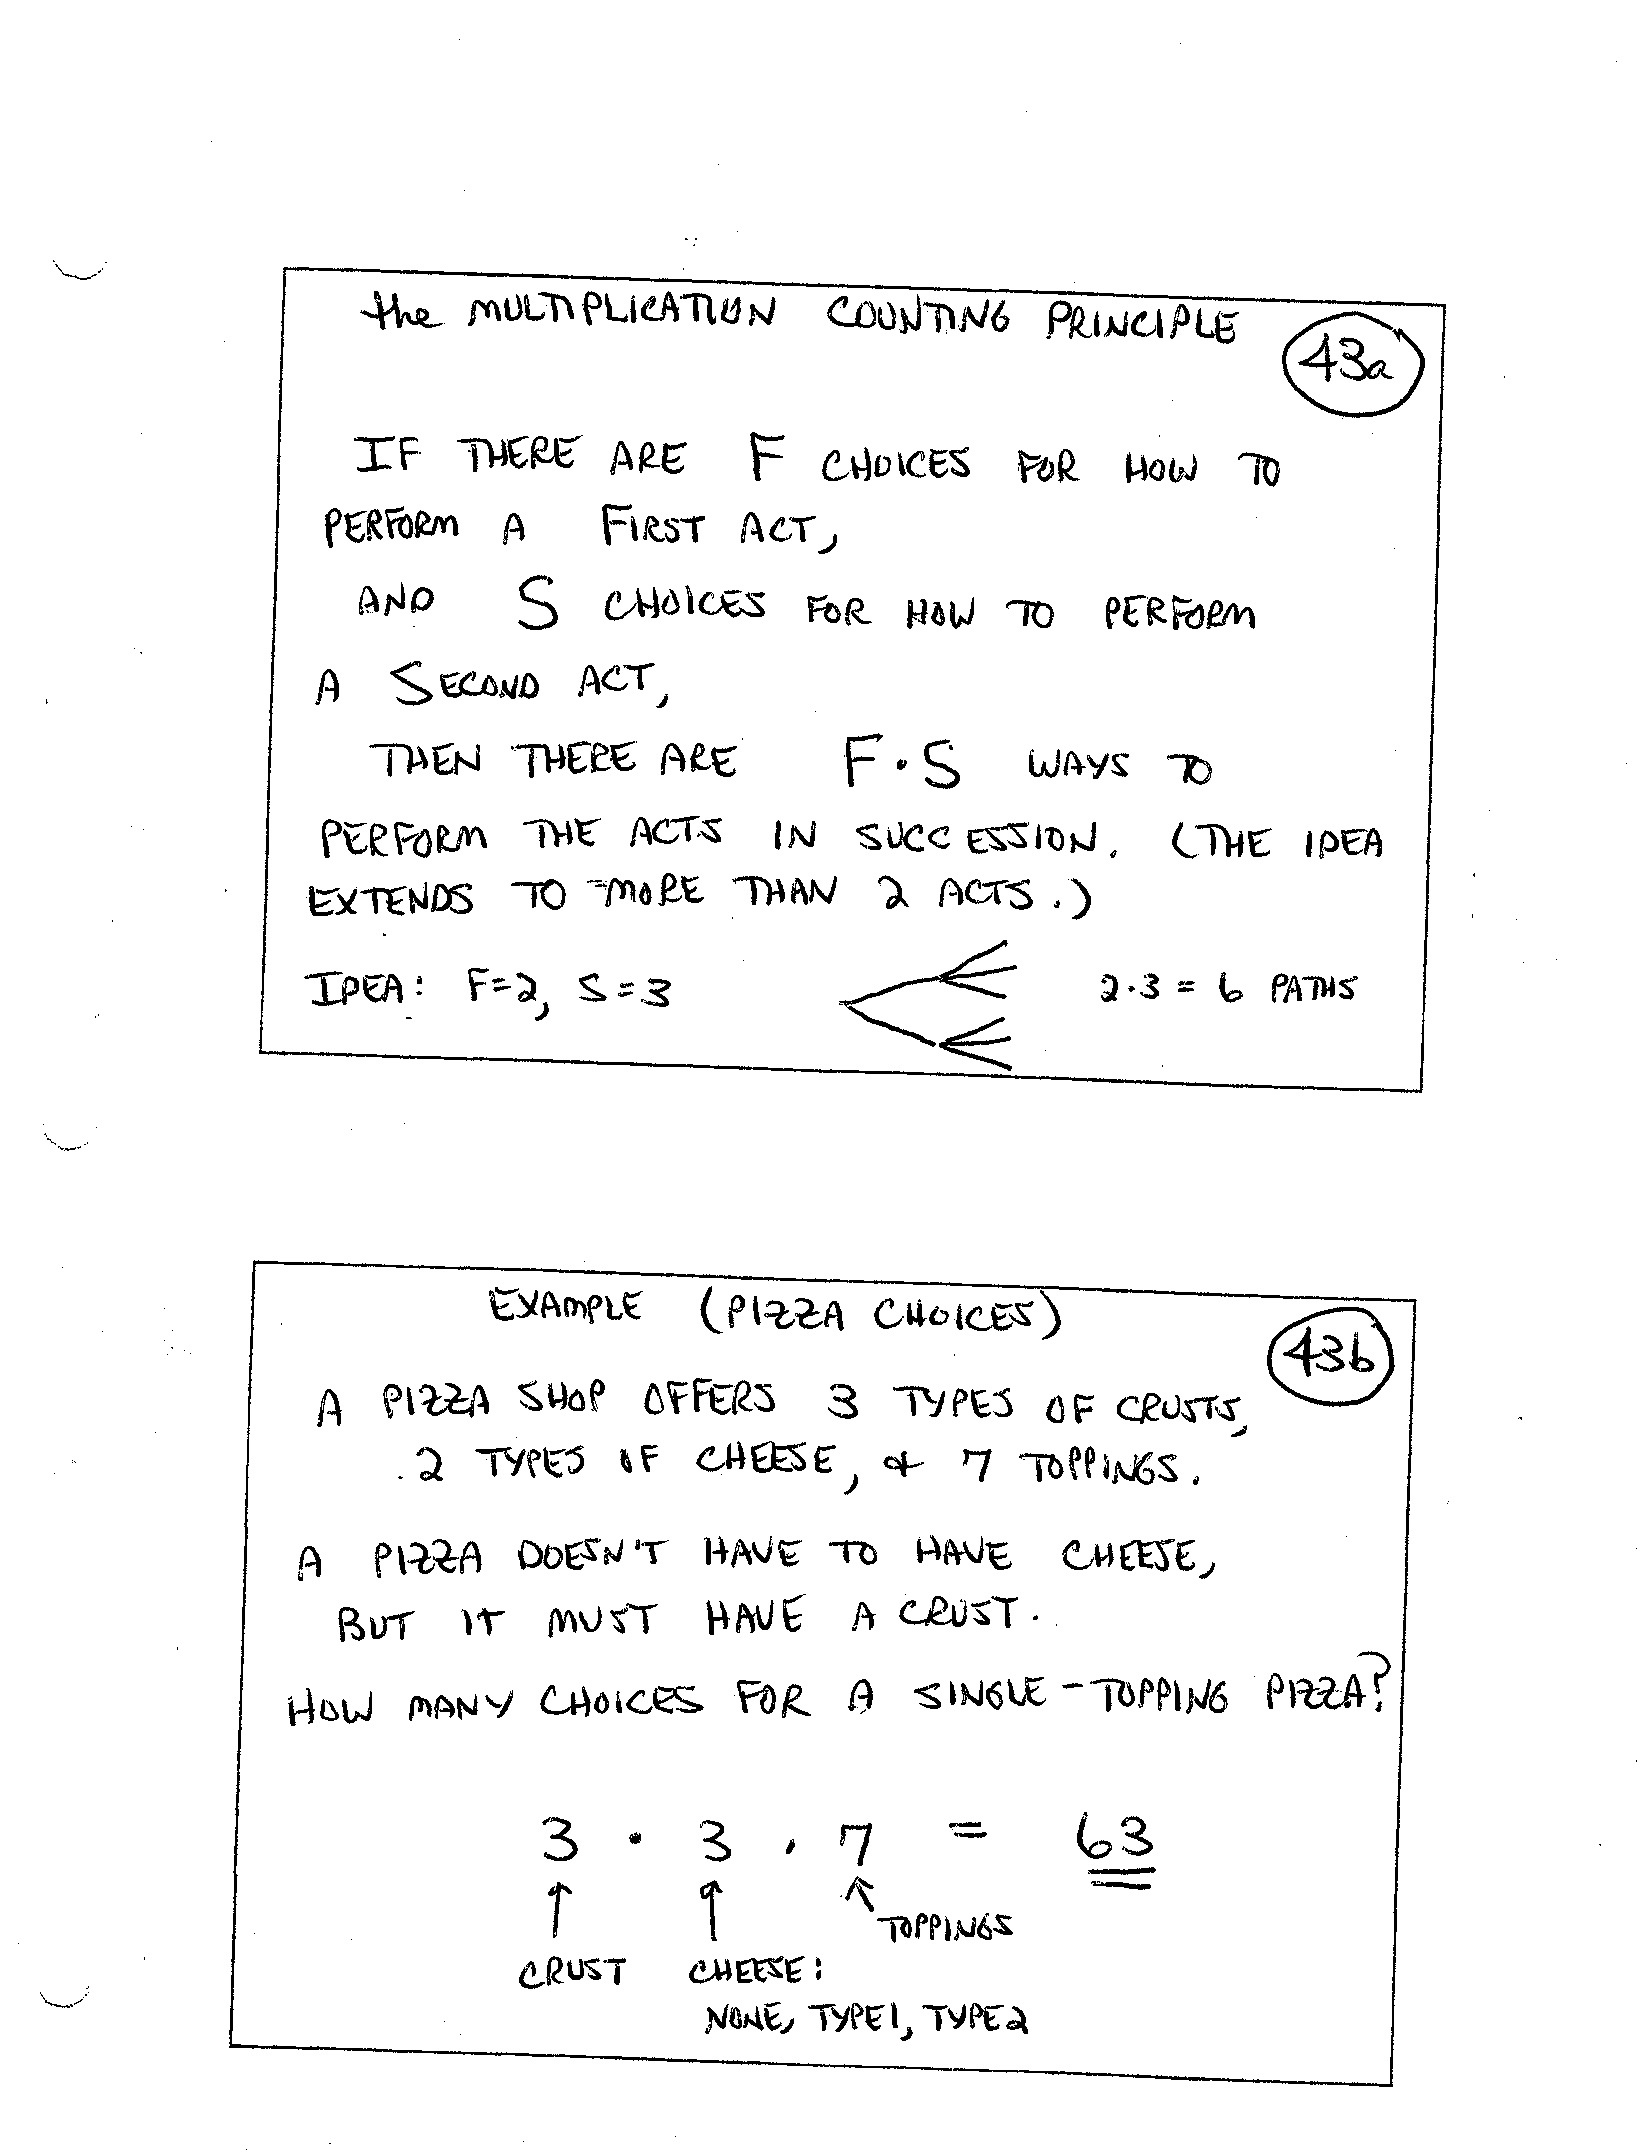 the MULTIPLICATION COUNTING PRINCIPLE
43a
IF THERE ARE F CHOICES FOR HOW TO
PERFORM A FIRST ACT,
AND S CHOICES FOR HOW TO PERFORM
A SECOND ACT,
THEN THERE ARE F·S WAYS TO
PERFORM THE ACTS IN SUCCESSION. (THE IDEA
EXTENDS TO MORE THAN 2 ACTS.)
IDEA: F=2, S=3 2·3 = 6 PATHS
EXAMPLE (PIZZA CHOICES)
43b
A PIZZA SHOP OFFERS 3 TYPES OF CRUSTS,
2 TYPES OF CHEESE, & 7 TOPPINGS.
A PIZZA DOESN'T HAVE TO HAVE CHEESE,
BUT IT MUST HAVE A CRUST.
HOW MANY CHOICES FOR A SINGLE-TOPPING PIZZA?
3 · 3 · 7 = 63
↑ ↑ ↖ TOPPINGS
CRUST CHEESE:
NONE, TYPE1, TYPE2